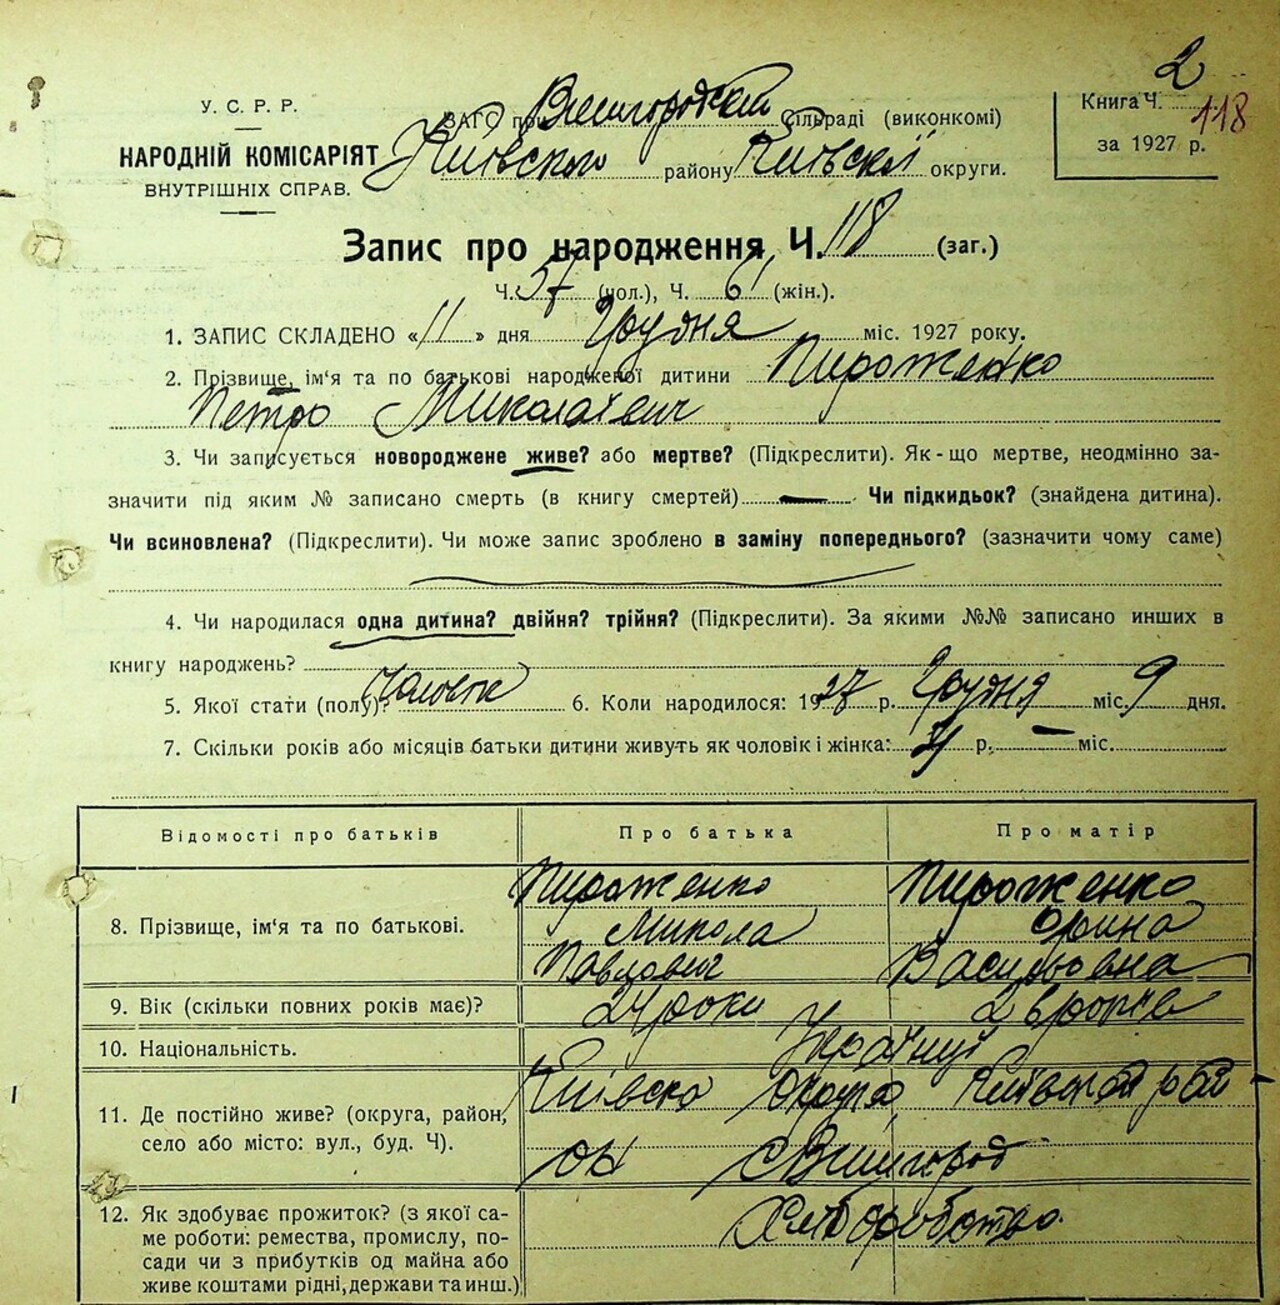 2
У. С. Р. Р.
НАРОДНІЙ КОМІСАРІЯТ
ВНУТРІШНІХ СПРАВ.
ЗАГС при Вишгородский Сільраді (виконкомі)
Київского району Київскої округи.
Книга Ч. 118
за 1927 р.
Запис про народження Ч. 118 (заг.)
Ч. 57 (чол.), Ч. 61 (жін.).
1. ЗАПИС СКЛАДЕНО «11» дня Грудня міс. 1927 року.
2. Прізвище, ім'я та по батькові народженої дитини Пироженко
Петро Миколаевич
3. Чи записується новороджене живе? або мертве? (Підкреслити). Як-що мертве, неодмінно за-
значити під яким № записано смерть (в книгу смертей) — Чи підкидьок? (знайдена дитина).
Чи всиновлена? (Підкреслити). Чи може запис зроблено в заміну попереднього? (зазначити чому саме)
4. Чи народилася одна дитина? двійня? трійня? (Підкреслити). За якими №№ записано инших в
книгу народжень?
5. Якої стати (полу)? 6. Коли народилося: 1927 р. Грудня міс. 9 дня.
7. Скільки років або місяців батьки дитини живуть як чоловік і жінка: р. — міс.
Відомості про батьків Про батька Про матір
8. Прізвище, ім'я та по батькові. Пироженко Микола Павлович Пироженко Орина Васильовна
9. Вік (скільки повних років має)? 24 роки
10. Національність. Українці
11. Де постійно живе? (округа, район, село або місто: вул., буд. Ч). Київска округа Київский рай
он с Вишгород
12. Як здобуває прожиток? (з якої са-
ме роботи: ремества, промислу, по-
сади чи з прибутків од майна або
живе коштами рідні, держави та инш.) Хліборобство.